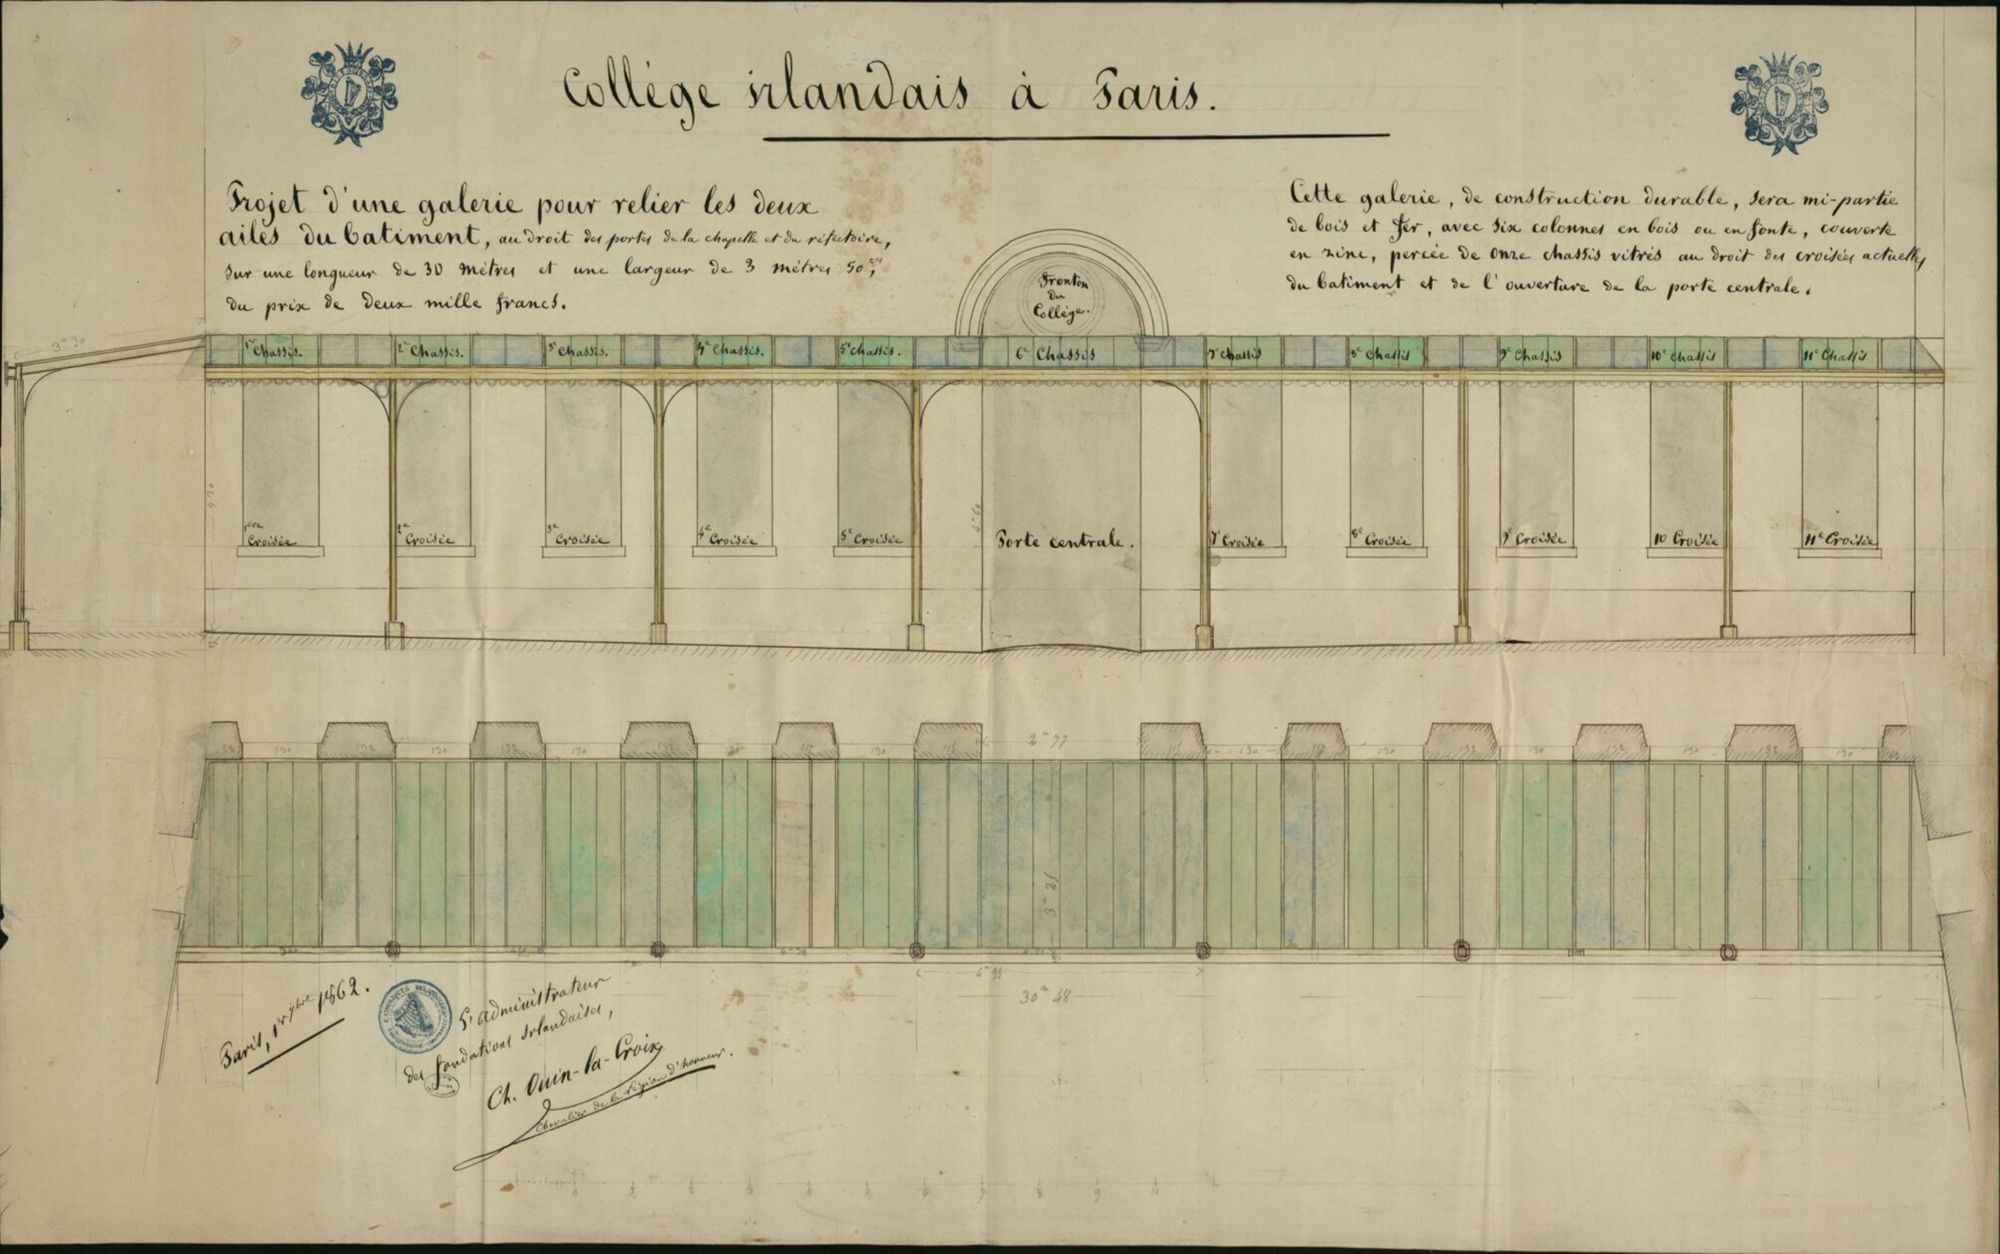 Collége irlandais à Paris.
Projet d'une galerie pour relier les deux
ailes du batiment, au droit des portes de la chapelle et du réfectoire,
sur une longueur de 30 métres et une largeur de 3 métres 50 c.,
du prix de deux mille francs.
Cette galerie, de construction durable, sera mi-partie
de bois et fer, avec six colonnes en bois ou en fonte, couverte
en zinc, percée de onze chassis vitrés au droit des croisées actuelles
du batiment et de l'ouverture de la porte centrale.
Fronton
du
Collége.
3m 30
1er Chassis.
2e Chassis.
3e Chassis.
4e Chassis.
5e chassis.
6e Chassis
7e chassis
8e Chassis
9e Chassis
10e chassis
11e Chassis
1ère Croisée
2e Croisée
3e Croisée
4e Croisée
5e Croisée
Porte centrale.
7e Croisée
8e Croisée
9e Croisée
10 Croisée
11e Croisée
130 132 130 132 130 132 130
2m 77
130 130 132 130 132 130 132 130
3m 25
30m 48
Paris, 1er 9bre 1862.
L'administrateur
des fondations irlandaises,
Ch. Ouin-la-Croix,
Chevalier de la Légion d'honneur.